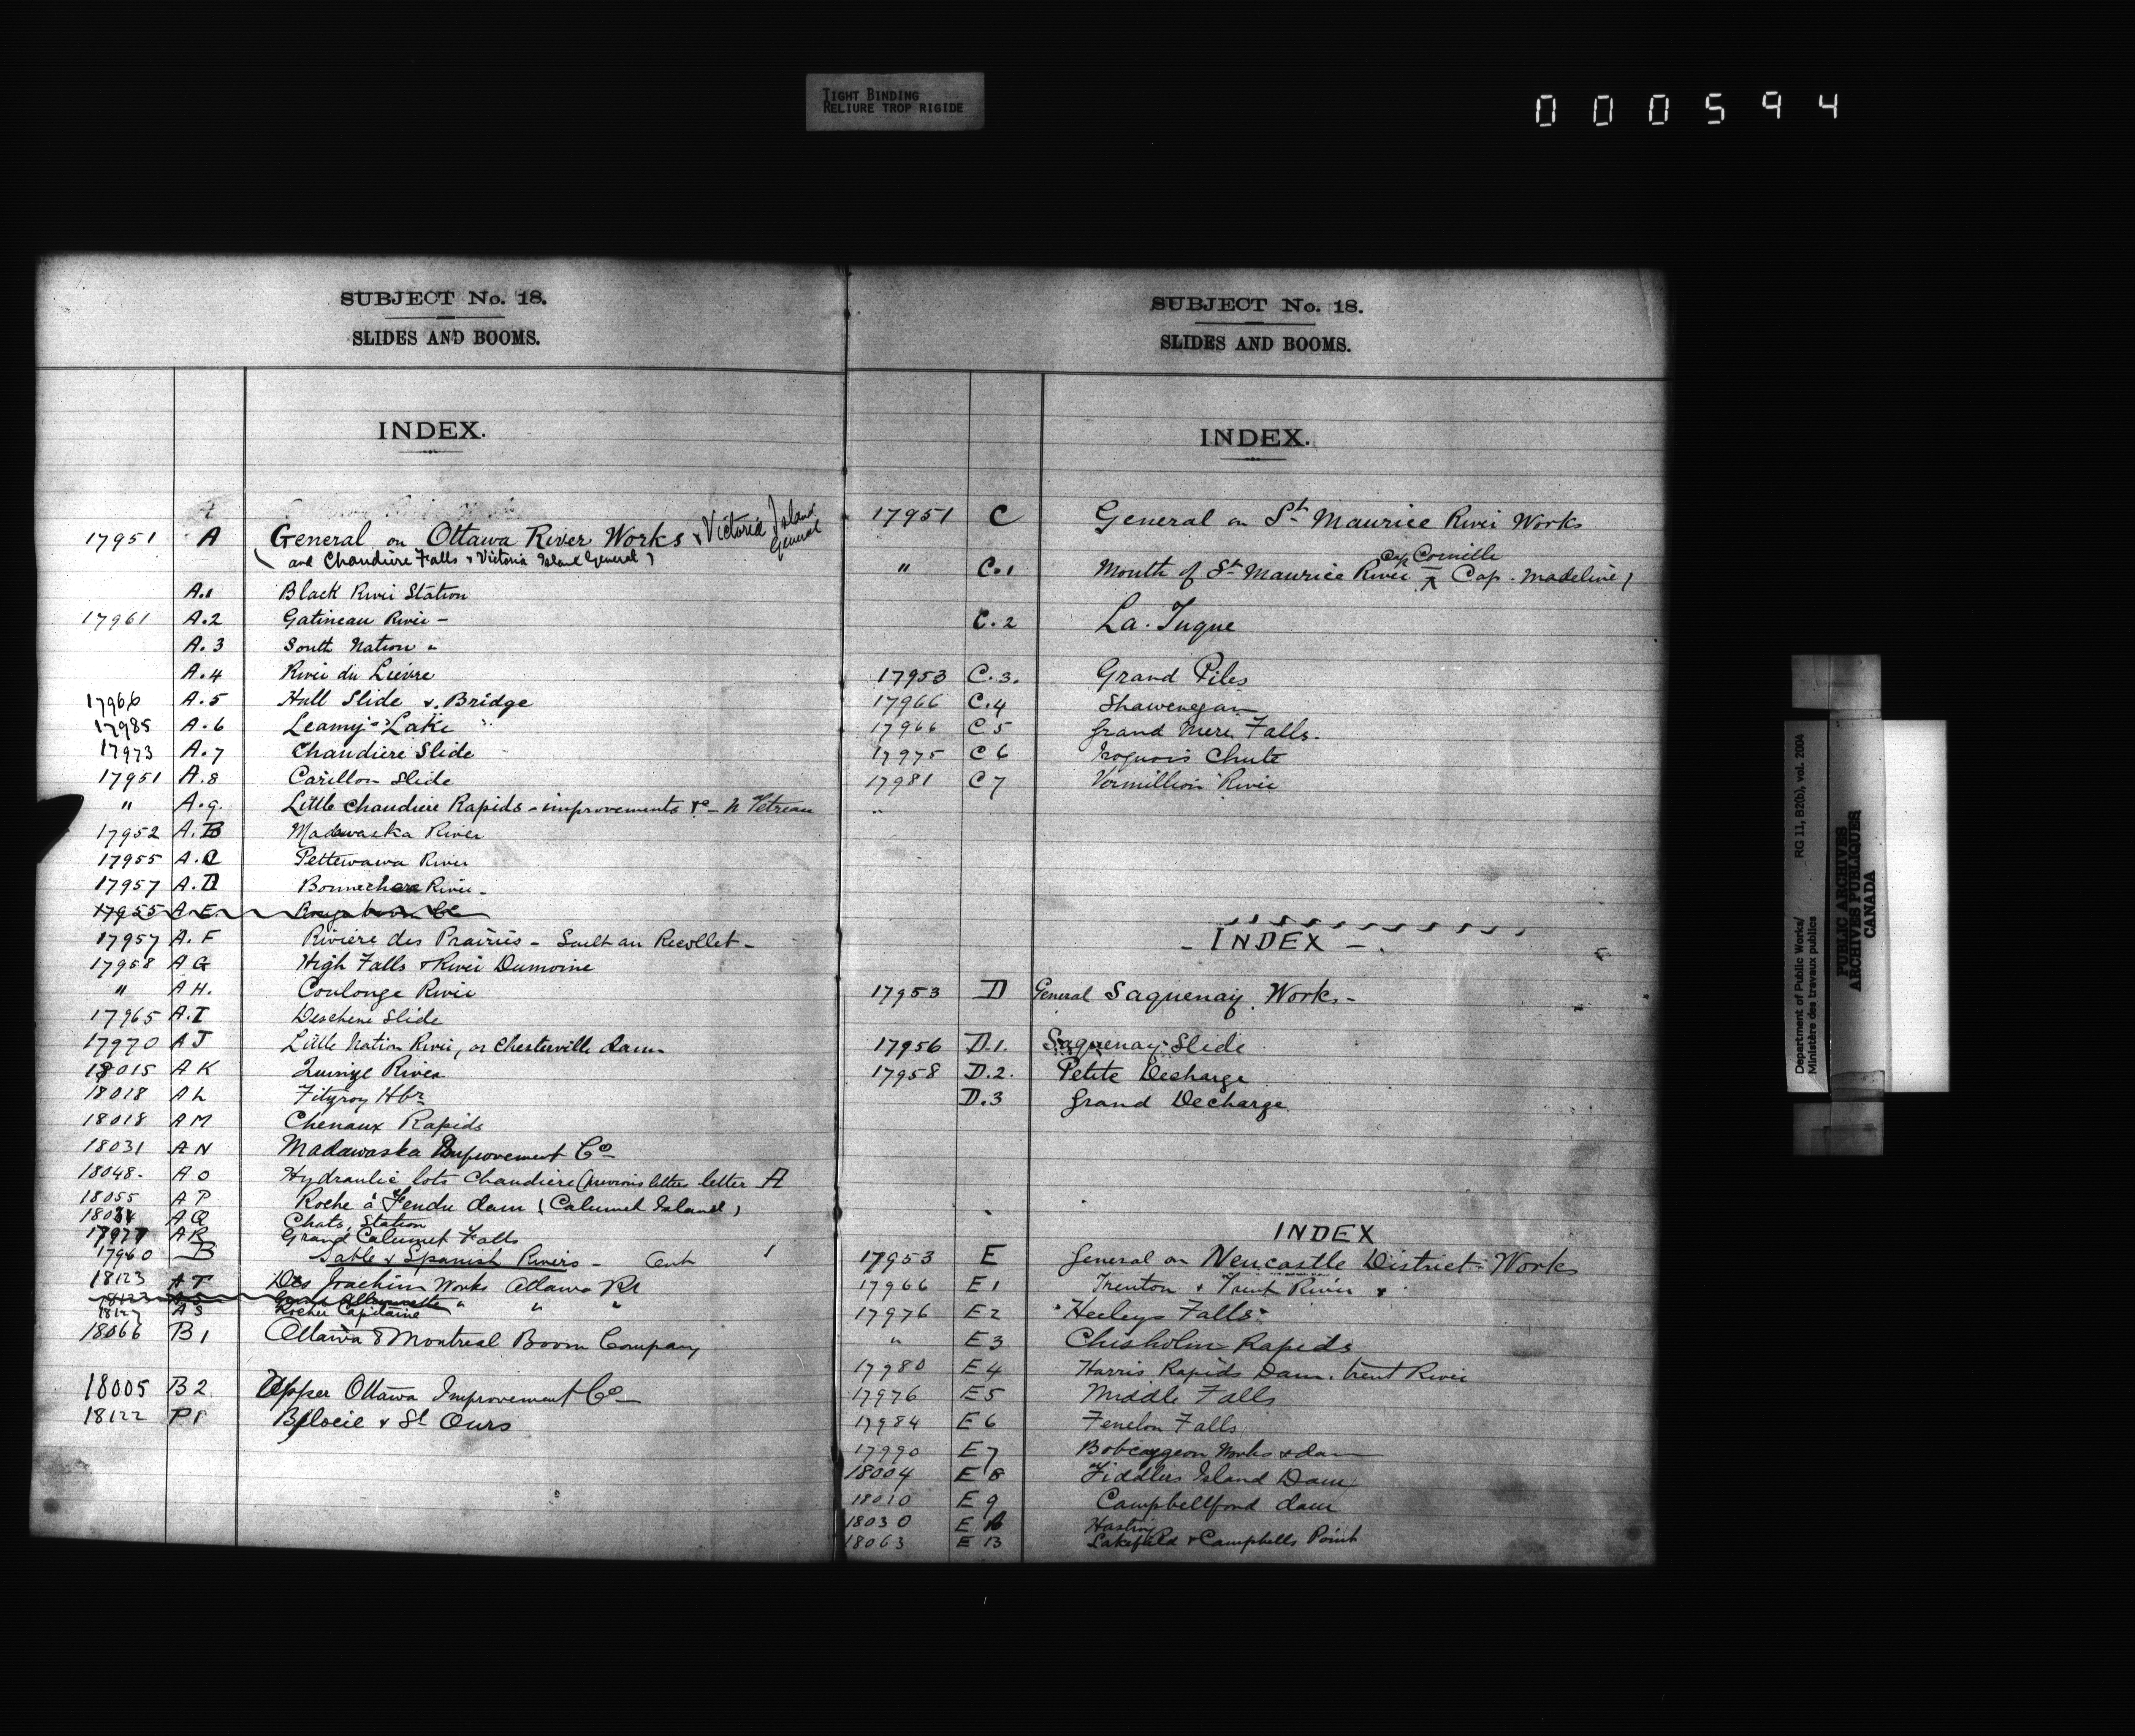 TIGHT BINDING
RELIURE TROP RIGIDE
000594
SUBJECT No. 18.
SLIDES AND BOOMS.
INDEX.
17951 A General on Ottawa River Works & Victoria Island General
(and Chaudière Falls & Victoria Island General)
A.1 Black River Station
17961 A.2 Gatineau River -
A.3 South Nation "
A.4 River du Lièvre
17966 A.5 Hull Slide & Bridge
17985 A.6 Leamy's Lake "
17973 A.7 Chaudiere Slide
17951 A.8 Carillon Slide
" A.9. Little Chaudiere Rapids - improvements &c - N Tetreau
17952 A.B Madawaska River
17955 A.C Pettewawa River
17957 A.D Bonnechere River -
17955 A.E.
17957 A.F Rivière des Prairies - Sault au Recollet -
17958 A G High Falls & River Dumoine
" A H. Coulonge River
17965 A.I Deschene Slide
17970 A J Little Nation River, or Chesterville dam
18015 A K River
18018 A L Fitzroy Hbr
18018 A M Chenaux Rapids
18031 A N Madawaska Improvement Co
18048. A O Hydraulic lots Chaudiere (previous letter letter A
18055 A P Roche à Fendu dam (Calumet Island)
A Q Chats, Station
17977 A R Grand Calumet Falls
17960 B Sable & Spanish Rivers - Ont
18123 A T Des Joachim Works Ottawa Rr
18123 A S " " "
18127 A S Rocher Capitaine
18066 B1 Ottawa & Montreal Boom Company
18005 B2 Upper Ottawa Improvement Co
18122 P1 Beloeil & St Ours
SUBJECT No. 18.
SLIDES AND BOOMS.
INDEX.
17951 C General on St Maurice River Works
Cap Corneille
" C.1 Mouth of St Maurice River Cap. Madeline)
C.2 La. Tuque
17953 C.3. Grand Piles
17966 C.4 Shawenegan
17966 C 5 Grand Mere Falls.
17975 C 6 Iroquois Chute
17981 C 7 Vermillion River
- INDEX -
17953 D General Saguenay Works -
17956 D.1. Saguenay Slide
17958 D.2. Petite Decharge
D.3 Grand Decharge
INDEX
17953 E General on Newcastle District Works
17966 E 1 Trenton & Trent River
17976 E 2 Heeleys Falls
" E 3 Chisholm Rapids
17980 E 4 Harris Rapids Dam. Trent River
17976 E 5 Middle Falls
17984 E 6 Fenelon Falls
17990 E 7 Bobcaygeon Works & dam
18004 E 8 Fiddlers Island Dam
18010 E 9 Campbellford dam
18030 E Hastings
18063 E 13 Lakefield & Campbells Point
Department of Public Works/ RG 11, B2(b), vol. 2004
Ministère des travaux publics
PUBLIC ARCHIVES
ARCHIVES PUBLIQUES
CANADA